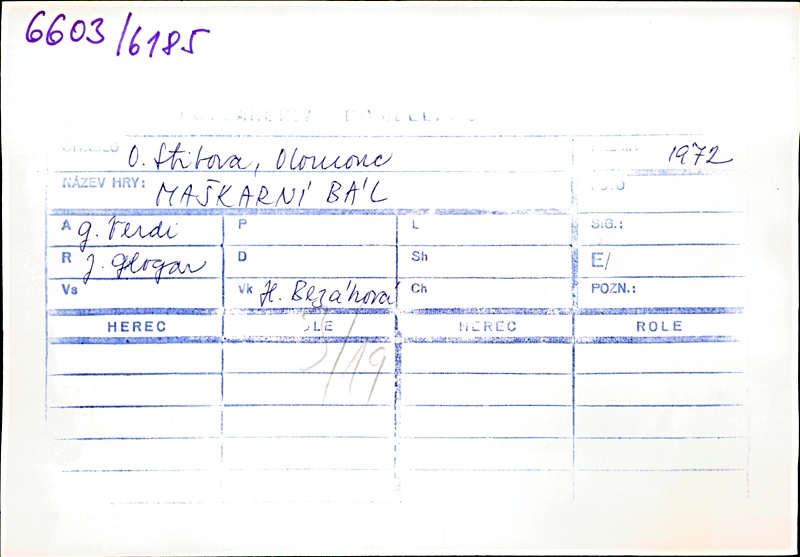 6603/6185
O. Stibora, Olomouc 1972
NÁZEV HRY: MAŠKARNÍ BÁL
A G. Verdi P L SIG.:
R J. Glogar D Sh E/
Vs Vk H. Bezáková Ch POZN.:
HEREC HEREC ROLE
3/19